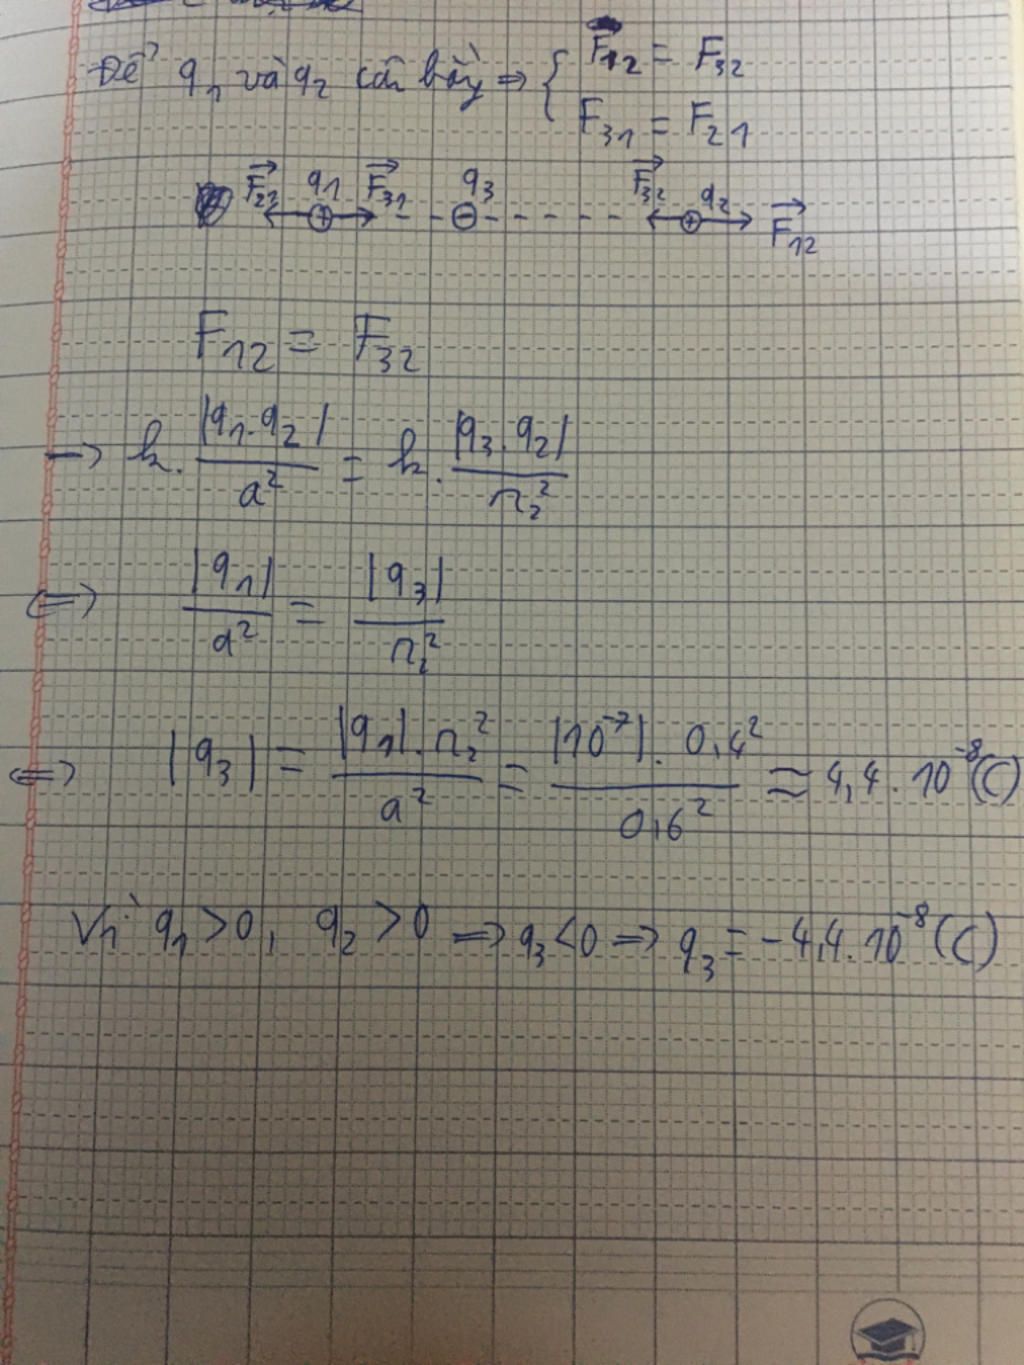 Để q₁ và q₂ cân bằng ⇒ { F₁₂ = F₃₂
F₃₁ = F₂₁
F₂₁ q₁ F₃₁ q₃ F₃₂ q₂ F₁₂
F₁₂ = F₃₂
→ k. |q₁.q₂| / a² = k. |q₃.q₂| / r₂²
⇔ |q₁| / a² = |q₃| / r₂²
⇔ |q₃| = |q₁|.r₂² / a² = |10⁻⁷|. 0,4² / 0,6² ≈ 4,4. 10⁻⁸ (C)
Vì q₁ > 0, q₂ > 0 ⇒ q₃ < 0 ⇒ q₃ = -4,4. 10⁻⁸ (C)